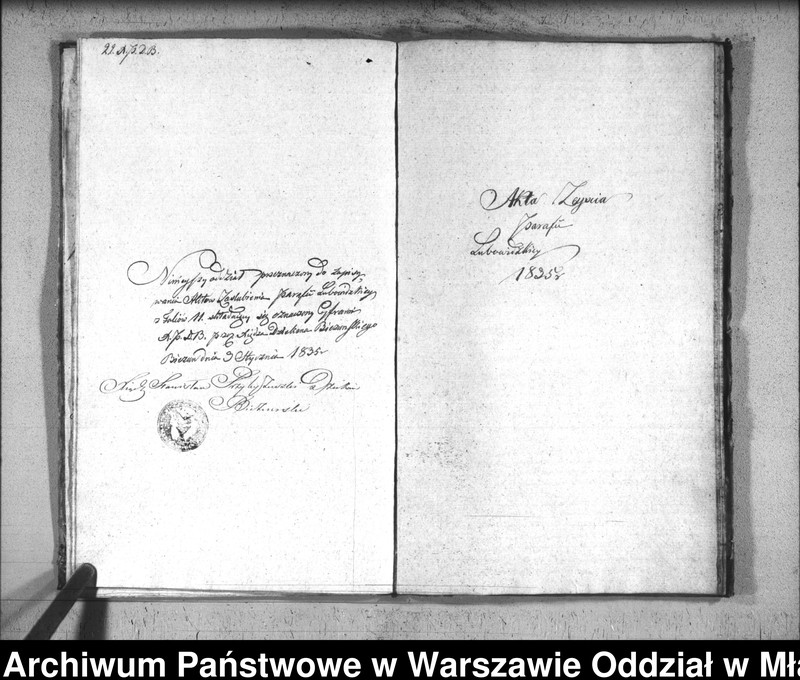 22. A. P. D. B.
Ninieyszy oddział przeznaczony do zapisy,
wania Aktów Zaślubienia Parafii Lubowidzkiey
z Foliów 11. składaiący się oznaczony Cyframi
A. P. D. B. przez Xiędza Dziekana Bieżuńskiego
Bieżuń dnia 3 Stycznia 1835r
Xiądz Stanisław Przybyszewski Dziekan
Bieżuński
Akta Zeyścia
Parafii
Lubowidzkiey
1835r
Archiwum Państwowe w Warszawie Oddział w Mła